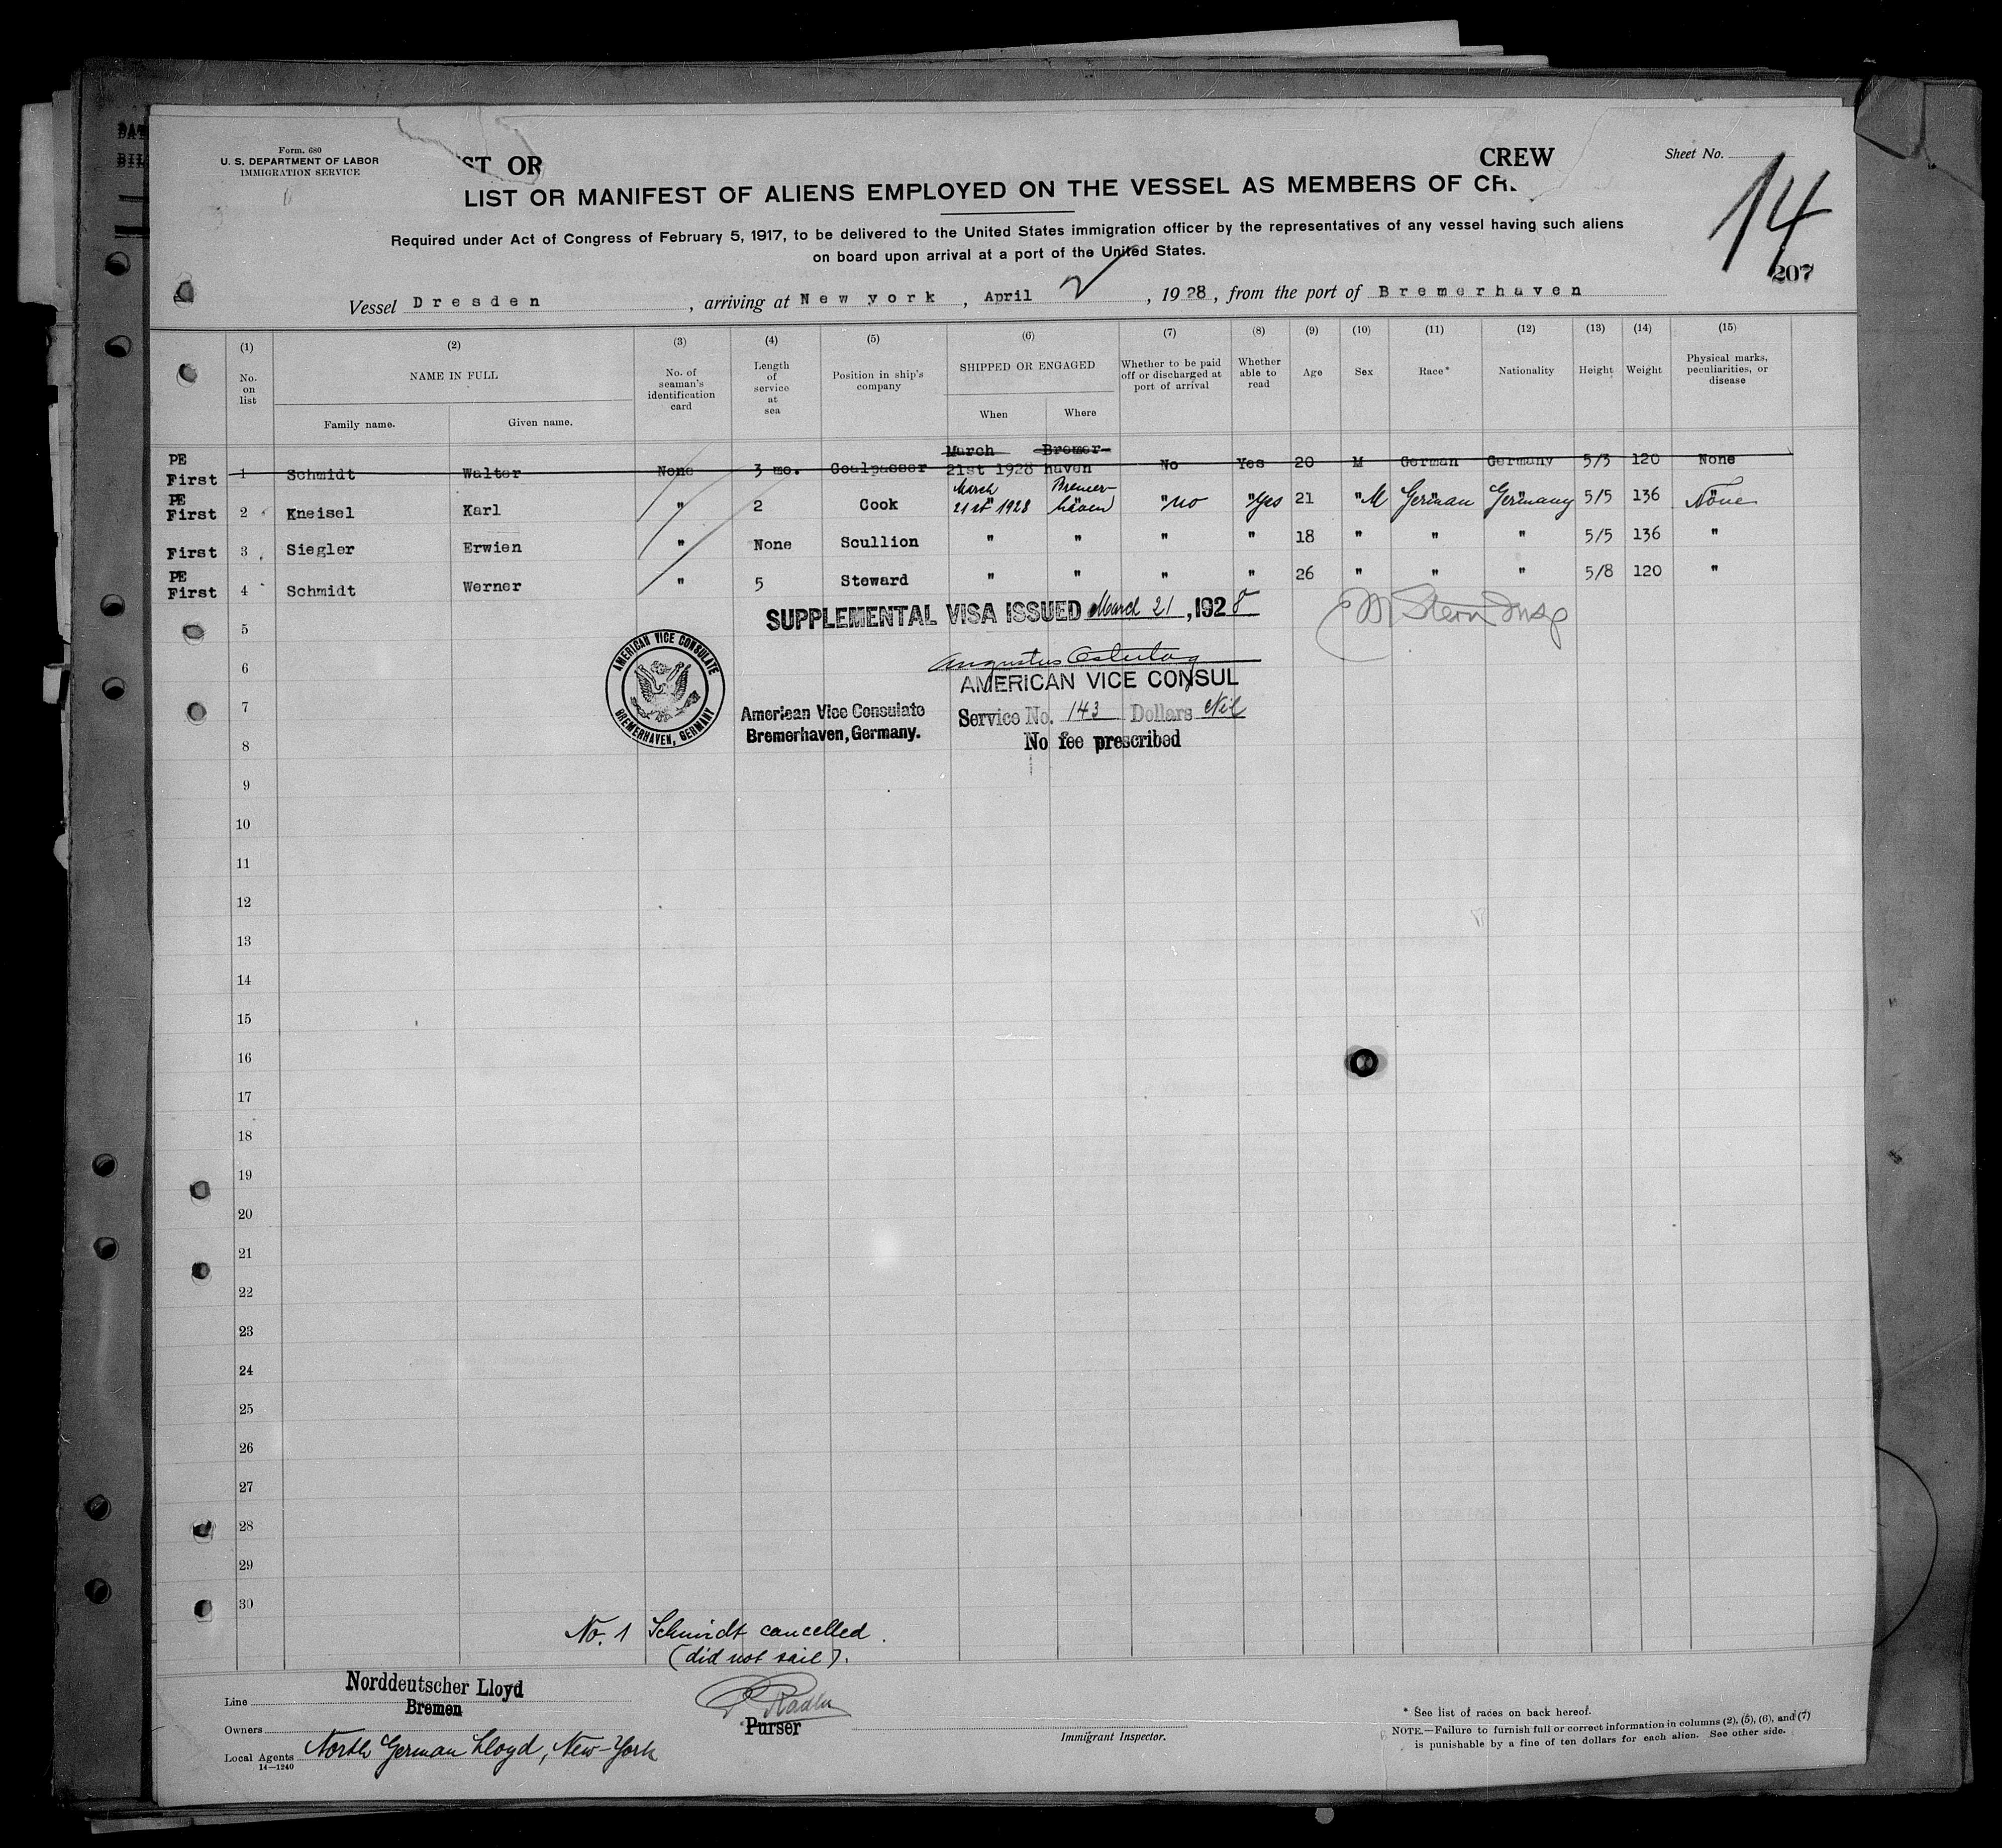 Form. 680
U. S. DEPARTMENT OF LABOR
IMMIGRATION SERVICE
ST OR
CREW
Sheet No.
14
207
LIST OR MANIFEST OF ALIENS EMPLOYED ON THE VESSEL AS MEMBERS OF CR
Required under Act of Congress of February 5, 1917, to be delivered to the United States immigration officer by the representatives of any vessel having such aliens
on board upon arrival at a port of the United States.
Vessel Dresden, arriving at New york, April 2, 1928, from the port of Bremerhaven
(1) (2) (3) (4) (5) (6) (7) (8) (9) (10) (11) (12) (13) (14) (15)
No. on list NAME IN FULL Family name. Given name. No. of seaman's identification card Length of service at sea Position in ship's company SHIPPED OR ENGAGED When Where Whether to be paid off or discharged at port of arrival Whether able to read Age Sex Race* Nationality Height Weight Physical marks, peculiarities, or disease
PE First 1 Schmidt Walter None 3 mo. Coalpasser March 21st 1928 Bremerhaven No Yes 20 M German Germany 5/5 120 None
PE First 2 Kneisel Karl " 2 Cook March 21st 1928 Bremerhaven " no " Yes 21 " M German Germany 5/5 136 None
First 3 Siegler Erwien " None Scullion " " " " 18 " " " 5/5 136 "
PE First 4 Schmidt Werner " 5 Steward " " " " 26 " " " 5/8 120 "
5
SUPPLEMENTAL VISA ISSUED March 21, 1928
Stern Insp
6
AMERICAN VICE CONSULATE
BREMERHAVEN, GERMANY
Augustus Ostertag
AMERICAN VICE CONSUL
7
American Vice Consulate
Bremerhaven, Germany.
Service No. 143 Dollars Nil
No fee prescribed
8
9
10
11
12
13
14
15
16
17
18
19
20
21
22
23
24
25
26
27
28
29
30
No. 1 Schmidt cancelled.
(did not sail).
Line Norddeutscher Lloyd
Bremen
Owners
Purser
Immigrant Inspector.
Local Agents North German Lloyd, New-York
14—1240
* See list of races on back hereof.
NOTE.—Failure to furnish full or correct information in columns (2), (5), (6), and (7)
is punishable by a fine of ten dollars for each alien. See other side.